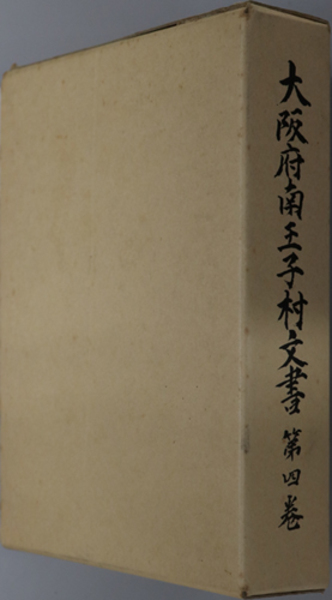 大阪府南王子村文書 第四巻